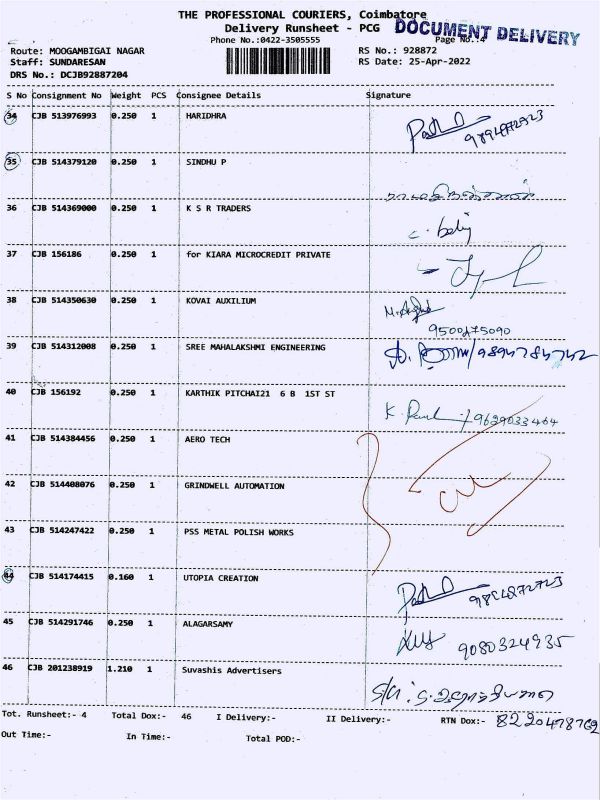 THE PROFESSIONAL COURIERS, Coimbatore
Delivery Runsheet - PCG
DOCUMENT DELIVERY
Phone No.:0422-3505555
Page No.:4
Route: MOOGAMBIGAI NAGAR
RS No.: 928872
Staff: SUNDARESAN
RS Date: 25-Apr-2022
DRS No.: DCJB92887204
S No Consignment No Weight PCS Consignee Details Signature
34 CJB 513976993 0.250 1 HARIDHRA
35 CJB 514379120 0.250 1 SINDHU P
36 CJB 514369000 0.250 1 K S R TRADERS
37 CJB 156186 0.250 1 for KIARA MICROCREDIT PRIVATE
38 CJB 514350630 0.250 1 KOVAI AUXILIUM
9500275090
39 CJB 514312008 0.250 1 SREE MAHALAKSHMI ENGINEERING
40 CJB 156192 0.250 1 KARTHIK PITCHAI21 6 B 1ST ST
9629033464
41 CJB 514384456 0.250 1 AERO TECH
42 CJB 514408076 0.250 1 GRINDWELL AUTOMATION
43 CJB 514247422 0.250 1 PSS METAL POLISH WORKS
44 CJB 514174415 0.160 1 UTOPIA CREATION
45 CJB 514291746 0.250 1 ALAGARSAMY
9080324935
46 CJB 201238919 1.210 1 Suvashis Advertisers
Tot. Runsheet:- 4 Total Dox:- 46 I Delivery:- II Delivery:- RTN Dox:- 8220478762
Out Time:- In Time:- Total POD:-